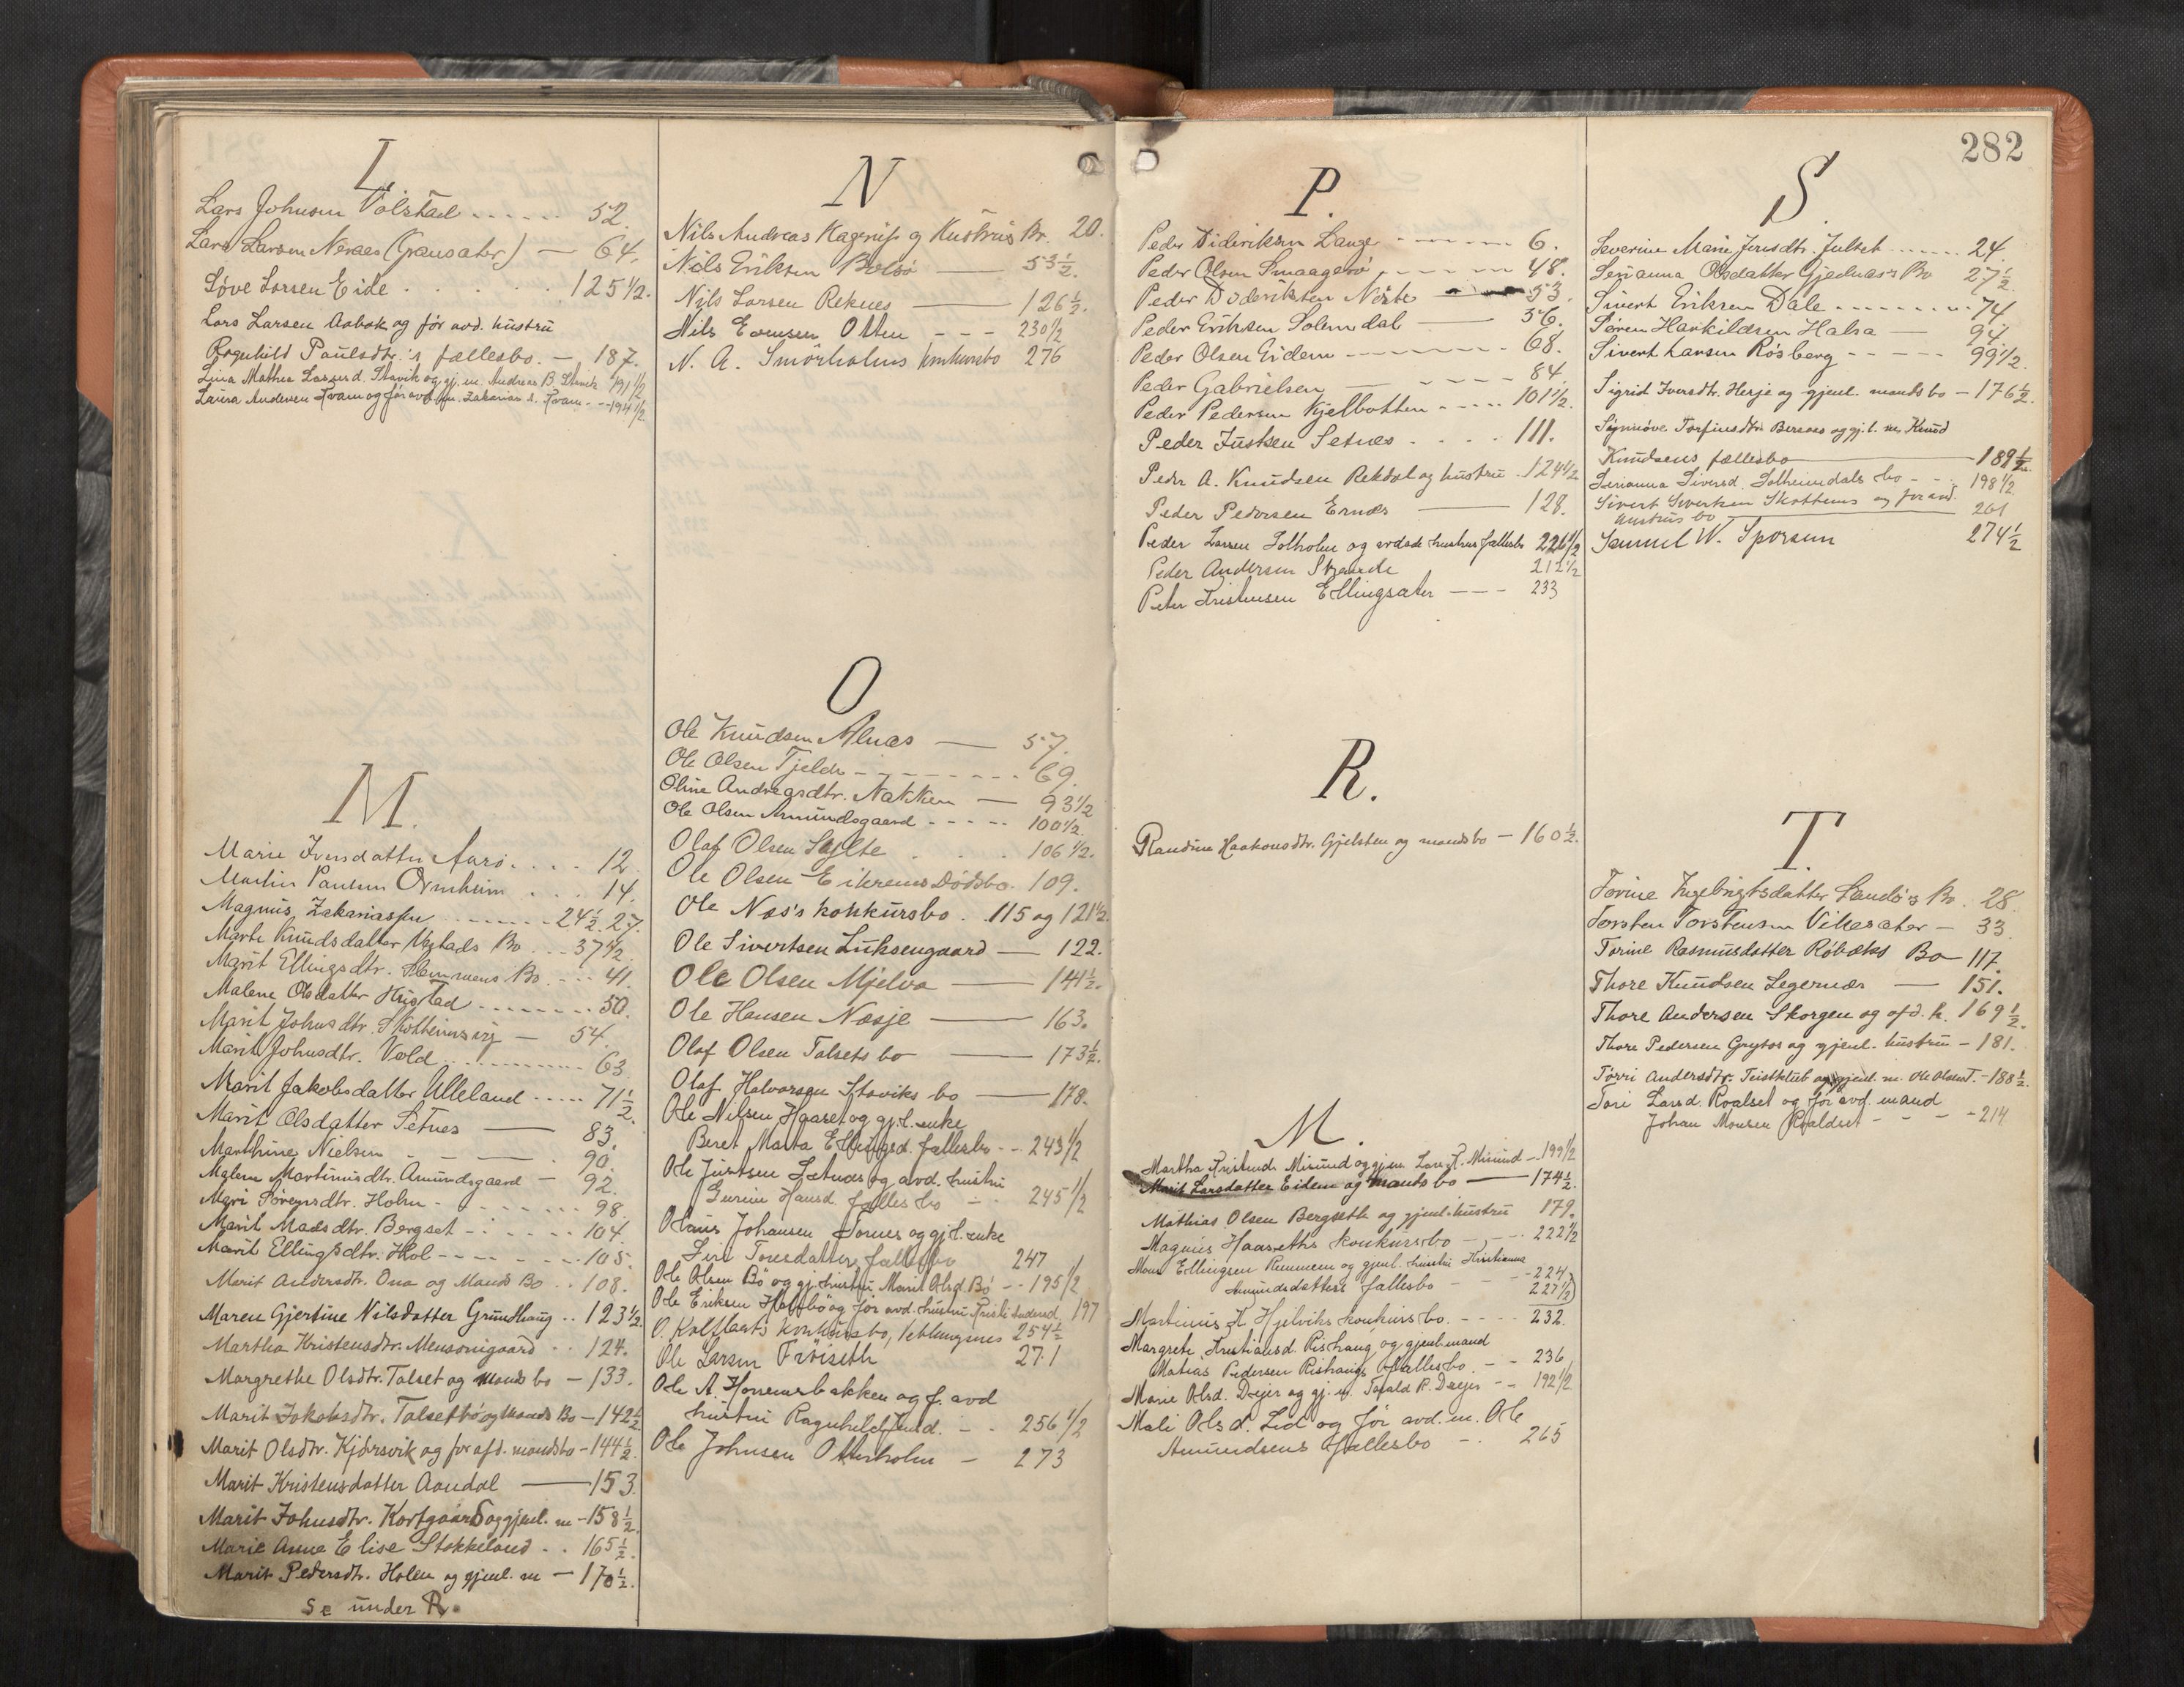 L.
Lars Johnsen Volstad ..... 52.
Lars Larsen Neraas (Grausæter) — 64.
Løve Larsen Eide ..... 125 1/2.
Lars Larsen Aabak og før avd. hustru
Ragnhild Paulsdtr.'s fællesbo. — 187.
Lina Mathea Lassesd. Stavik og gj. m. Andreas B. Stavik 191 1/2
Laura Andersen Kvam og før avd. m. Zakarias s. Kvam. -- 194 1/2
M.
Marie Iversdatter Aarø .... 12.
Martin Paulsen Ormheim ... 14.
Magnus Zakariassen ...... 24 1/2. 27.
Marte Knudsdatter Bo ... 37 1/2
Marit Ellingsdtr. Bo ... 41.
Malene Olsdatter Hustad ...... 50.
Marit Johnsdtr. — 54.
Marit Johnsdtr. Vold ...... 63
Marit Jakobsdatter Ulleland ..... 71 1/2.
Marit Olsdatter Setnes — 83.
Marthine Nielsen - - — . 90.
Malene Martinusdtr. Amundsgaard — 92.
Mari Sørensdtr. Holm ........ 98.
Marit Madsdtr. Bergset ...... 104.
Marit Ellingsdtr. Hol ------ 105.
Marit Andersdtr. Ona og Mands Bo .. 108.
Maren Gjertine Nilsdatter Grundhaug .. 123 1/2.
Martha Kristensdtr. Mensonigaard .. 124.
Margrethe Olsdtr. Talset og Mands bo — 133.
Marit Jakobsdtr. Talsetbø og Mands Bo — 142 1/2
Marit Olsdtr. Kjørsvik og før afd. mandsbo — 144 1/2.
Marit Kristensdatter Aandal — 153.
Marit Johnsdtr. Kortgaard og gjenl. m — 158 1/2.
Marie Anne Elise Stokkeland .. 165 1/2.
Marit Pedersdtr. Holen og gjenl. m — 170 1/2.
Se under R.
N
Nils Andreas Kagerup og Hustrus Bo. 20.
Nils Eriksen Bolsø — 53 1/2.
Nils Larsen Reknes — 126 1/2.
Nils Evensen Otten - - - 230 1/2
N. A. Smørholms konkursbo 276
O
Ole Knudsen Alnæs — 57.
Ole Olsen Tjelde --------- 69.
Oline Andreasdtr. Nakken — 93 1/2
Ole Olsen Amundsgaard ----- 100 1/2.
Olaf Olsen Sylte .... 106 1/2.
Ole Olsen Eikrems Dødsbo. 109.
Ole Næs's konkursbo. . 115 og 121 1/2.
Ole Sivertsen Luksengaard — 122.
Ole Olsen Mjelva — 141 1/2.
Ole Hansen Næsje — 163.
Olaf Olsen Talsets bo — 173 1/2.
Olaf Halvorsen Staviks bo — 178.
Ole Nilsen Haaset og gj.l. enke
Beret Marta Ellingsd. fællesbo -- 243 1/2
Ole Justsen Setnæs og avd. hustru
Gurine Hansd. fælles bo -- 245 1/2
Olaus Johansen Tornes og gj.l. enke
Siri Toresdatters fællesbo 247
Ole Olsen Bø og gj. hustru Marit Olsd. Bø -- 195 1/2
Ole Eriksen Halsbø og før avd. hustru Kristi 197
O. Kolflaaths konkursbo, Veblungsnes 254 1/2
Ole Larsen Frøiseth 271
Ole A. Hovensbakken og f. avd
hustru Ragnhild Knud. - . 256 1/2
Ole Johnsen Otterholm — 273
282
P.
Peder Dideriksen Lange ------ 6.
Peder Olsen Smaagesø ------ 48.
Peder Dideriksen Nerbø — 53.
Peder Eriksen Solemdal — 56.
Peder Olsen Eidem -------- 68.
Peder Gabrielsen — ---- 84.
Peder Pedersen Kjelbotten ----- 101 1/2.
Peder Justsen Setnæs .... 111.
Peder A. Knudsen Rekdal og hustru . 124 1/2
Peder Pedersen Ernæs — 128.
Peder Larsen Solholm og avdøde hustrus fællesbo 226 1/2
Peder Andersen Strande 212 1/2
Peter Kristensen Ellingsæter --- 233
R.
Randine Haakonsdtr. Gjelsten og mandsbo — 160 1/2.
M.
Martha Kristensd. Misund og gjen. Lars K. Misund -- 199 1/2
Marit Larsdatter Eidem og Mands bo — 174 1/2.
Mathias Olsen Bergseth og gjenl. hustru 179.
Magnus Haaseths konkursbo ---- 222 1/2
Mons Ellingsen Remmem og gjenl. hustru Kristianna
Amundsdatters fællesbo - - - 224
227 1/2)
Martinius K Hjelviks konkursbo. ---- 232.
Margrete Kristiansd. Rishaug og gjenl. mand
Matias Pedersen Rishaugs fællesbo - - 236
Marie Olsd. Dryer og gj. m. P. Dryer -- 192 1/2
Mali Olsd. Lid og før avd. m. Ole
Amundsens fællesbo -. 265
S.
Severine Marie Jensdtr. Julset ...... 24.
Serianna Olsdatter Gjednæs's Bo 27 1/2.
Sivert Eriksen Dale ------- 74
Søren Havkildsen Halsa — 94.
Sivert Larsen Røsberg ----- 99 1/2.
Sigrid Iversdtr. Herje og gjenl. mands bo — 176 1/2.
Synnøve Torfinsdtr. Bersaas og gj.l. m. Knud
Knudsens fællesbo — 189 1/2.
Serianna Siversd. Solheimdals bo - - . 198 1/2.
Sivert Sivertsen Skottems og før avd.
hustrus bo — 201
Samuel W. Sporsem 274 1/2
T.
Torine Ingebrigtsdatter Sandø's Bo. 28.
Torsten Torstensen Vikesæter — 33.
Torine Rasmusdatter Røbæks Bo — 117.
Thore Knudsen Legernæs — 151.
Thore Andersen Skorgen og afd. h. 169 1/2.
Thore Pedersen Grytos og gjenl. hustru — 181.
Torri Andersdtr. Teistklub og gjenl. m. Ole Olsen T. — 188 1/2.
Tori Larsd. Roalset og før avd. mand
Johan Monsen Roaldset - - - - 214